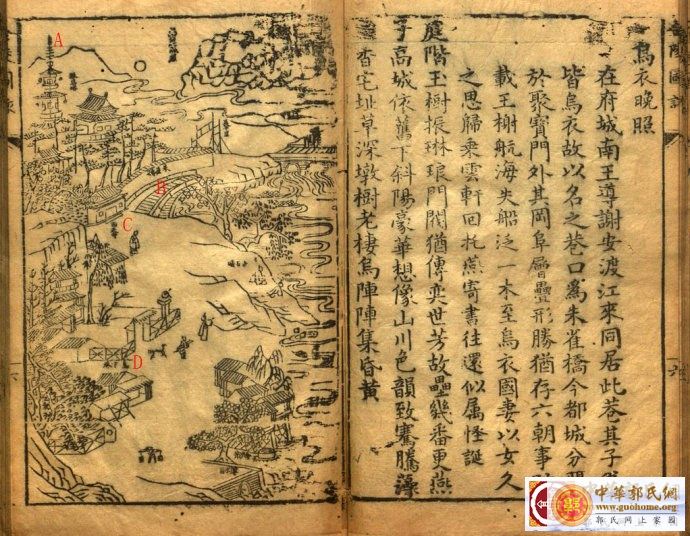 烏衣晚照
在府城南王導謝安渡江來同居此巷其子
皆烏衣故以名之巷口為朱雀橋今都城分
於聚寶門外其岡阜層疊形勝猶存六朝事
載王榭航海失船泛一木至烏衣國妻以女久
之思歸乘雲軒回托燕寄書往還似屬怪誕
庭階玉樹振琳琅門閥猶傳奕世芳故壘幾番更燕
子高城依舊下斜陽豪華想像山川色韻致騫騰藻
香宅址草深墩樹老棲烏陣陣集昏黃
A
B
C
D
中華郭氏網
www.guohome.org
郭氏网上家园